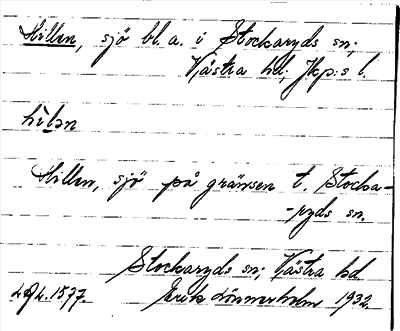 Hillen, sjö bl. a. i Stockaryds sn;
Västra hd; Jkp:s l.
hìlən
Hillen, sjö på gränsen t. Stocka-
-ryds sn.
Stockaryds sn; Västra hd
1577. Erik Lönnerholm 1932.